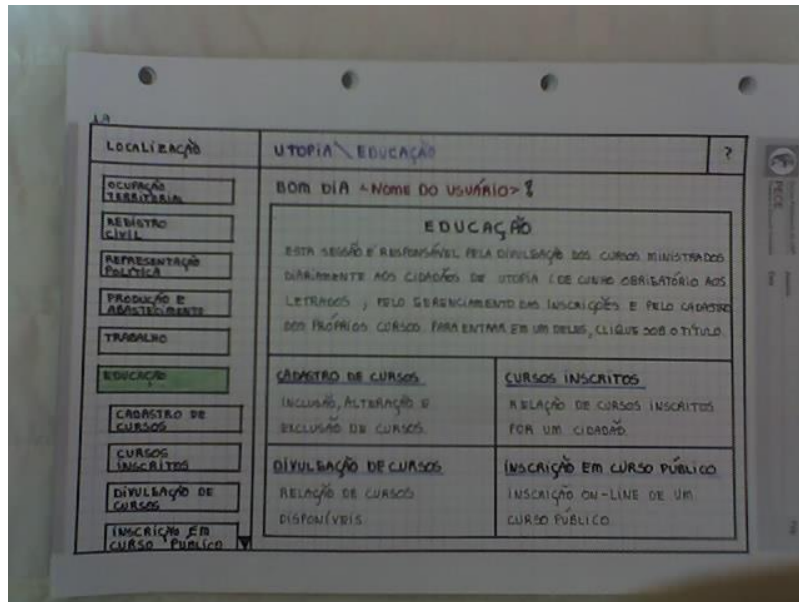 LOCALIZAÇÃO
UTOPIA \ EDUCAÇÃO
?
OCUPAÇÃO
TERRITORIAL
REGISTRO
CIVIL
REPRESENTAÇÃO
POLÍTICA
PRODUÇÃO E
ABASTECIMENTO
TRABALHO
EDUCAÇÃO
CADASTRO DE
CURSOS
CURSOS
INSCRITOS
DIVULGAÇÃO DE
CURSOS
INSCRIÇÃO EM
CURSO PÚBLICO
BOM DIA <NOME DO USUÁRIO>!
EDUCAÇÃO
ESTA SESSÃO É RESPONSÁVEL PELA DIVULGAÇÃO DOS CURSOS MINISTRADOS
DIARIAMENTE AOS CIDADÃOS DE UTOPIA (DE CUNHO OBRIGATÓRIO AOS
LETRADOS), PELO GERENCIAMENTO DAS INSCRIÇÕES E PELO CADASTRO
DOS PRÓPRIOS CURSOS. PARA ENTRAR EM UM DELES, CLIQUE SOB O TÍTULO.
CADASTRO DE CURSOS
INCLUSÃO, ALTERAÇÃO E
EXCLUSÃO DE CURSOS.
CURSOS INSCRITOS
RELAÇÃO DE CURSOS INSCRITOS
POR UM CIDADÃO.
DIVULGAÇÃO DE CURSOS
RELAÇÃO DE CURSOS
DISPONÍVEIS.
INSCRIÇÃO EM CURSO PÚBLICO
INSCRIÇÃO ON-LINE DE UM
CURSO PÚBLICO.
PECE